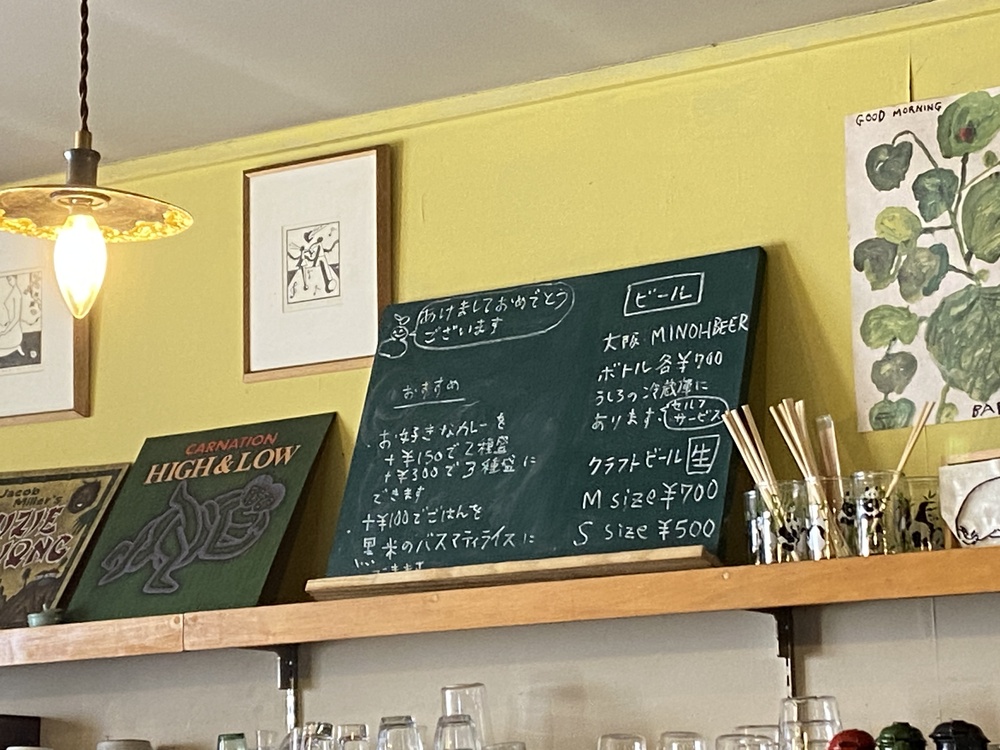 GOOD MORNING
あけましておめでとう
ございます
おすすめ
・お好きなカレーを
+¥150で2種盛
+¥300で3種盛に
できます
・+¥100でごはんを
黒米のバスマティライスに
ビール
大阪 MINOHBEER
ボトル各¥700
うしろの冷蔵庫に
あります。
セルフ
サービス
クラフトビール 生
M size ¥700
S size ¥500
CARNATION
HIGH & LOW
Jacob
Miller's